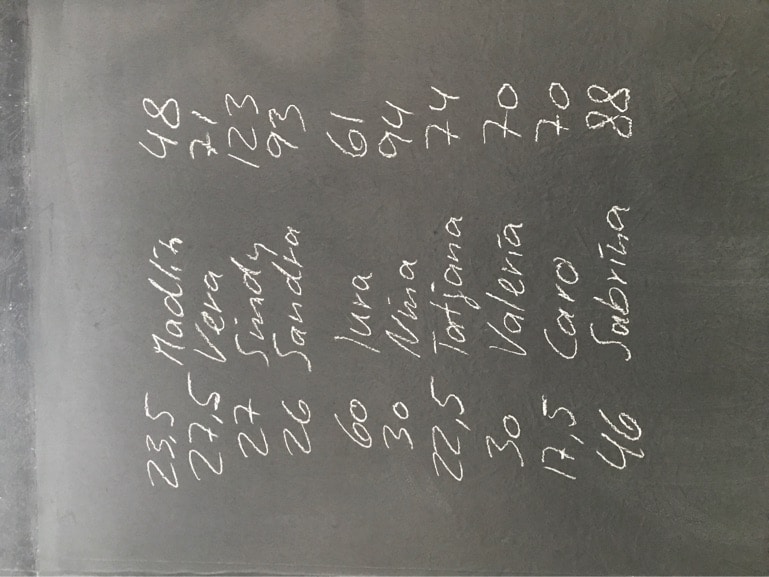 23,5 Madlin 48
27,5 Vera 71
27 Sindy 123
26 Sandra 93
60 Iura 61
30 Nina 94
22,5 Tatjana 74
30 Valeria 70
17,5 Caro 70
46 Sabrina 88